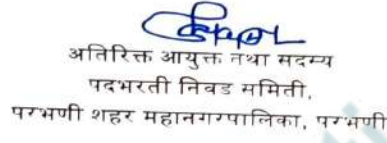 अतिरिक्त आयुक्त तथा सदस्य
पदभरती निवड समिती,
परभणी शहर महानगरपालिका, परभणी